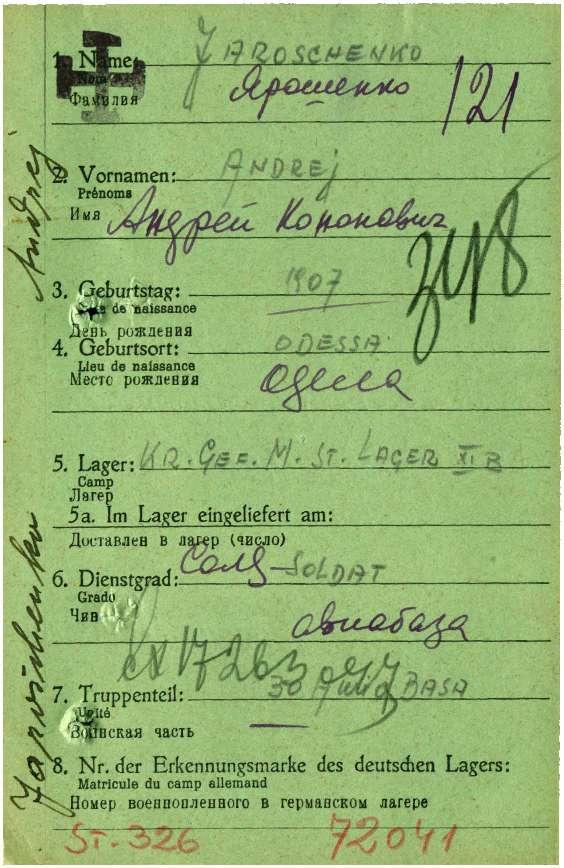 1. Name: JAROSCHENKO
Nom
Фамилия Ярошенко
121
2. Vornamen: ANDREJ
Prénoms
Имя Андрей Кононович
3. Geburtstag: 1907
de naissance
День рождения
4. Geburtsort: ODESSA
Lieu de naissance
Место рождения Одесса
5. Lager: KR. GEF. M. ST. LAGER XI B
Camp
Лагер
5a. Im Lager eingeliefert am:
Доставлен в лагер (число)
6. Dienstgrad: Солд SOLDAT
Grado
Чин
авиабаза
7. Truppenteil: 30 BASA
Unité
Воинская часть
8. Nr. der Erkennungsmarke des deutschen Lagers:
Matricule du camp allemand
Номер военнопленного в германском лагере
ST. 326 72041
Andrej
Jaroschenko